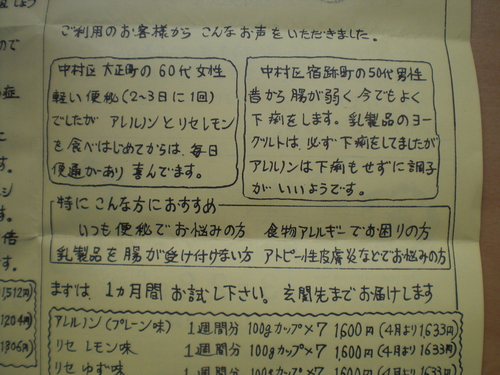 ご利用のお客様から こんなお声をいただきました。
中村区 大正町の 60代 女性
軽い便秘(2~3日に1回)
でしたが アレルノンとリセレモン
を食べはじめてからは、毎日
便通があり 喜んでます。
中村区 宿跡町の50代男性
昔から腸が弱く 今でもよく
下痢をします。乳製品のヨー
グルトは、必ず下痢をしてましたが
アレルノンは下痢もせずに調子
が いいようです。
特に こんな方におすすめ
いつも便秘でお悩みの方 食物アレルギーでお困りの方
乳製品を腸が受け付けない方 アトピー性皮膚炎などでお悩みの方
まずは、1カ月間 お試し下さい。 玄関先までお届けします
アレルノン(プレーン味) 1週間分 100gカップ×7 1600円(4月より1,633円)
リセ レモン味 1週間分 100gカップ×7 1600円(4月より1,633円)
リセ ゆず味 1週間分 100gカップ×7 1600円(4月より1,633円)